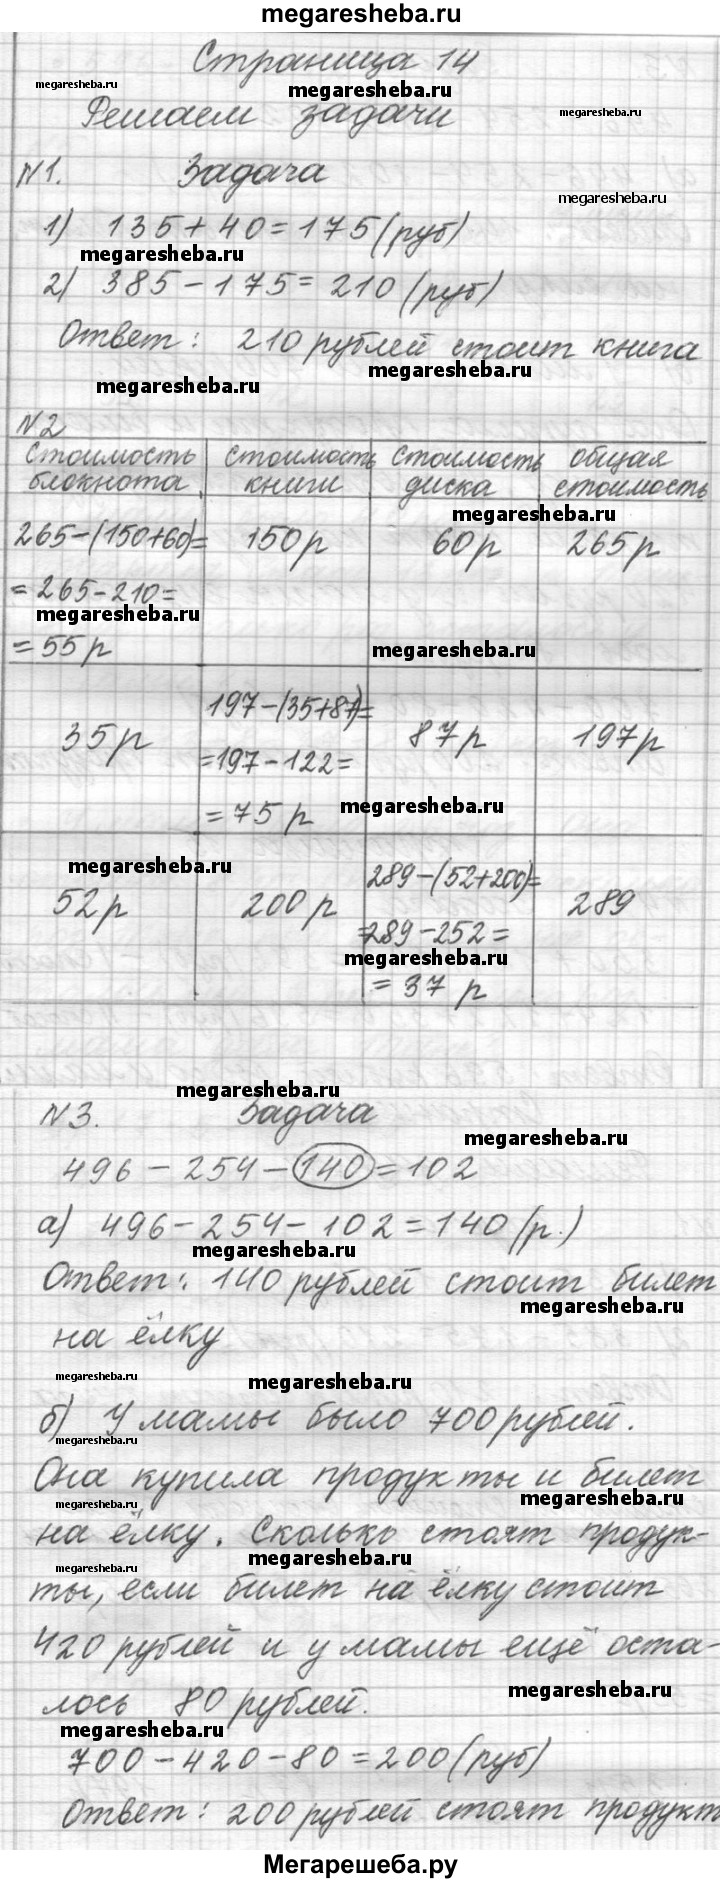 megaresheba.ru
Страница 14
megaresheba.ru
megaresheba.ru
Решаем задачи
megaresheba.ru
№1. Задача
megaresheba.ru
1) 135+40=175(руб)
megaresheba.ru
2) 385-175=210(руб)
Ответ: 210 рублей стоит книга
megaresheba.ru
megaresheba.ru
№2
Стоимость блокнота | стоимость книги | стоимость диска | общая стоимость
megaresheba.ru
265-(150+60)= | 150р | 60р | 265р
=265-210=
megaresheba.ru
=55р
megaresheba.ru
35р | 197-(35+87)= | 87р | 197р
=197-122=
=75р
megaresheba.ru
megaresheba.ru
52р | 200р | 289-(52+200)= | 289
=289-252=
megaresheba.ru
=37 р
megaresheba.ru
№3. Задача
megaresheba.ru
496-254-140=102
а) 496-254-102=140(р.)
megaresheba.ru
Ответ: 140 рублей стоит билет
megaresheba.ru
на ёлку
megaresheba.ru
megaresheba.ru
б) У мамы было 700 рублей.
megaresheba.ru
Она купила продукты и билет
megaresheba.ru
megaresheba.ru
на ёлку. Сколько стоят продук-
megaresheba.ru
megaresheba.ru
ты, если билет на ёлку стоит
420 рублей и у мамы ещё оста-
megaresheba.ru
лось 80 рублей.
megaresheba.ru
700-420-80=200(руб)
Ответ: 200 рублей стоят продукт
Мегарешеба.ру